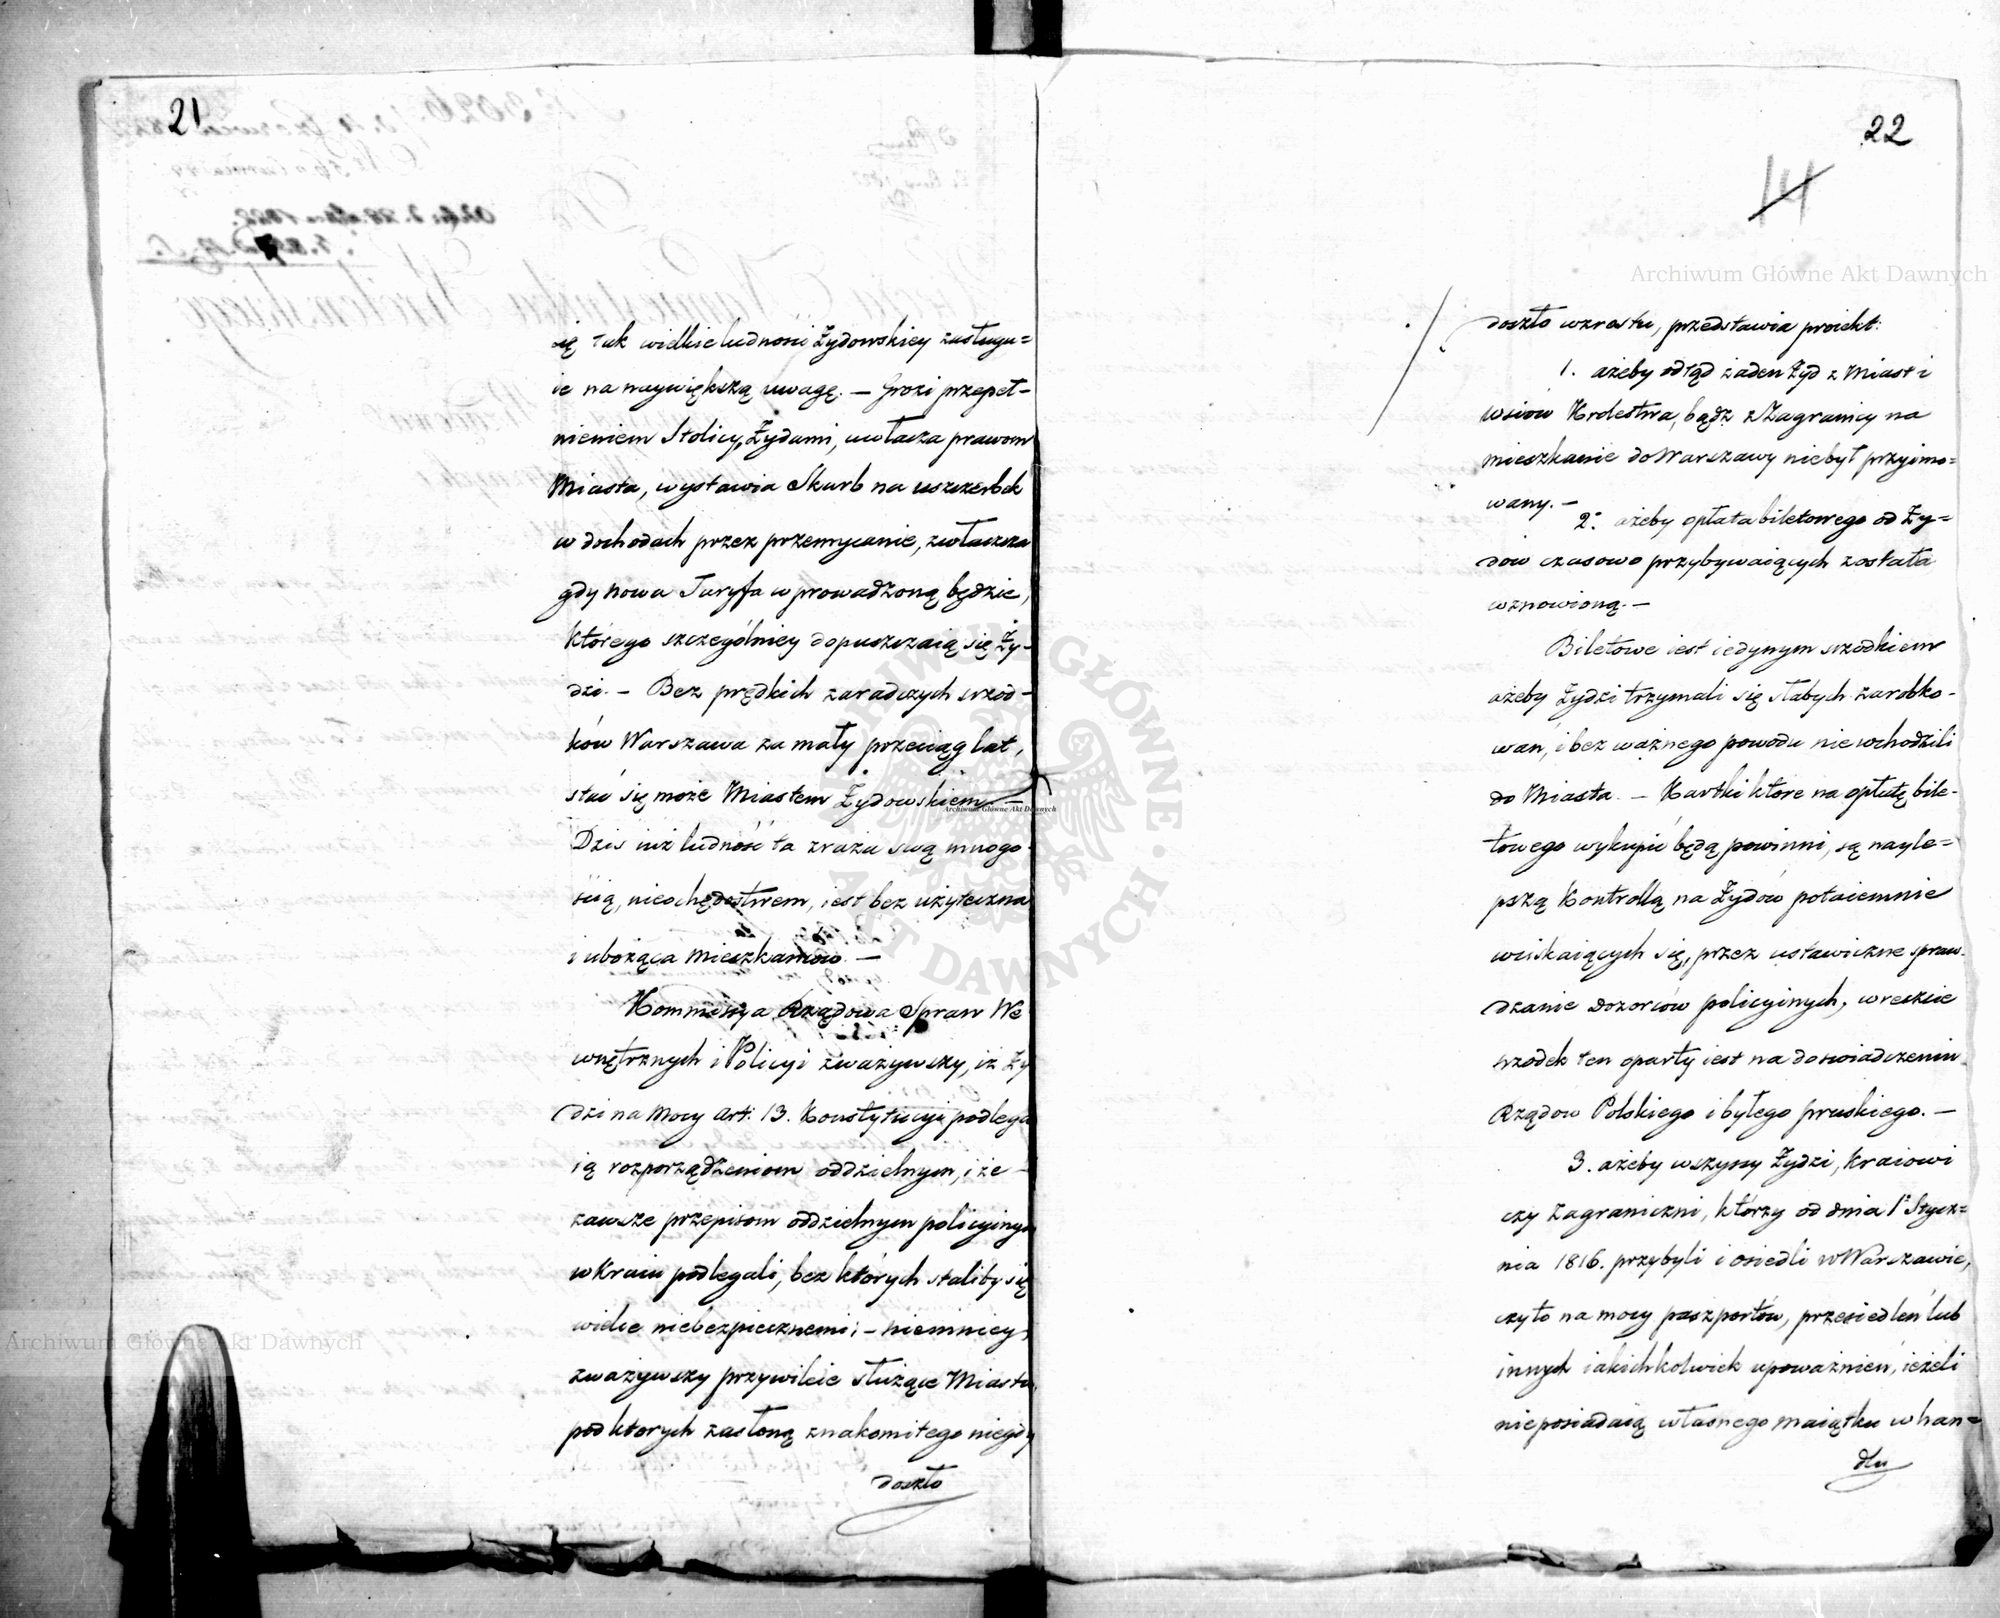 21
się tak wielkie ludności Żydowskiey zasługu=
ie na naywiększą uwagę. — Grozi przepeł-
nieniem Stolicy Żydami, uwłacza prawom
Miasta, wystawia Skarb na uszczerbek
w dochodach przez przemycanie, zwłaszcza
gdy nowa Taryfa wprowadzoną będzie,
którego szczególniey dopuszczaią się Ży-
dzi. — Bez prędkich zaradczych srzod-
ków Warszawa za mały przeciąg lat,
stać się może Miastem Żydowskiem. —
Dziś iuż ludność ta zraża swą mnogo
ścią, niechędostwem, iest bez użyteczna
i ubożąca Mieszkańców. —
Kommissya Rządowa Spraw We
wnętrznych i Policyi zważywszy, iż Ży
dzi na mocy Art: 13. Konstytucyi podlega
ią rozporządzeniom oddzielnym, i że —
zawsze przepisom oddzielnym policyinym
w Kraiu podlegali, bez których staliby się
wielce niebezpiecznemi; — niemniey,
zważywszy przywileie służące Miastu,
pod ktorych zasłoną znakomitego niegdy
doszło
22
14
doszło wzrostu, przedstawia proiekt:
1. ażeby odtąd żaden Żyd z Miast i
wsiow Krolestwa, bądz z Zagranicy na
mieszkanie do Warszawy niebył przyimo=
wany. —
2. ażeby opłata biletowego od Ży=
dow czasowo przybywaiących została
wznowioną. —
Biletowe iest iedynym srzodkiem
ażeby Żydzi trzymali się słabych zarobko-
wań, i bez ważnego powodu nie wchodzili
do Miasta. — Kartki które na opłatę bile-
towego wykupić będą powinni, są nayle=
pszą Kontrollą na Żydów potaiemnie
wciskaiących się, przez ustawiczne spraw-
dzanie dozorców policyinych, wreszcie
srzodek ten oparty iest na doswiadczeniu
Rządow Polskiego i byłego pruskiego. —
3. ażeby wszyscy Żydzi, kraiowi
czy Zagraniczni, którzy od dnia 1º Stycz=
nia 1816. przybyli i osiedli w Warszawie,
czyto na mocy paszportów, przesiedleń lub
innych iakichkolwiek upoważnień, ieżeli
nieposiadaią własnego maiątku w han=
dlu
Archiwum Główne Akt Dawnych
Archiwum Główne Akt Dawnych
Archiwum Główne Akt Dawnych
ARCHIWUM GŁÓWNE AKT DAWNYCH